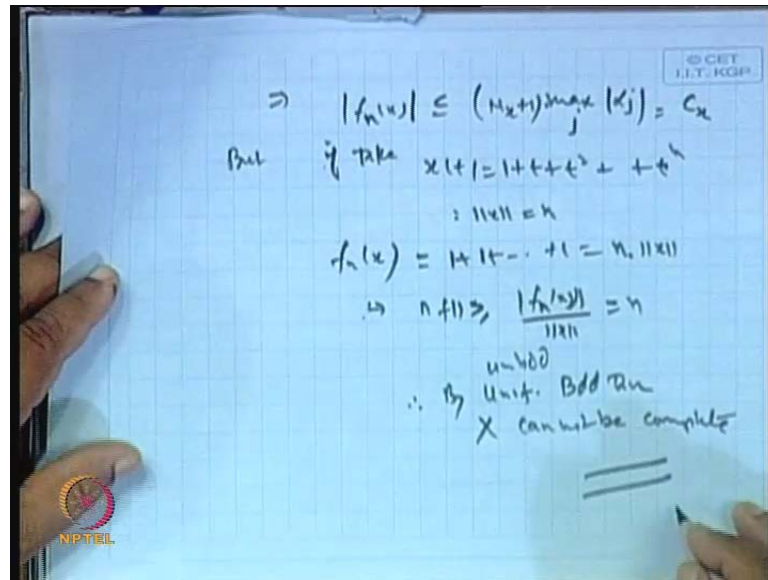 © CET
I.I.T. KGP
⇒ |fₙ(x)| ≤ (Nₓ+1) max |αj| = Cₓ
j
But if take x(t) = 1 + t + t² + + tⁿ
: ||x|| = n
fₙ(x) = 1 + 1 + -- + 1 = n. ||x||
|fₙ(x)| / ||x|| = n
unbdd
∴ By Unif. Bdd
X can not be complete
NPTEL